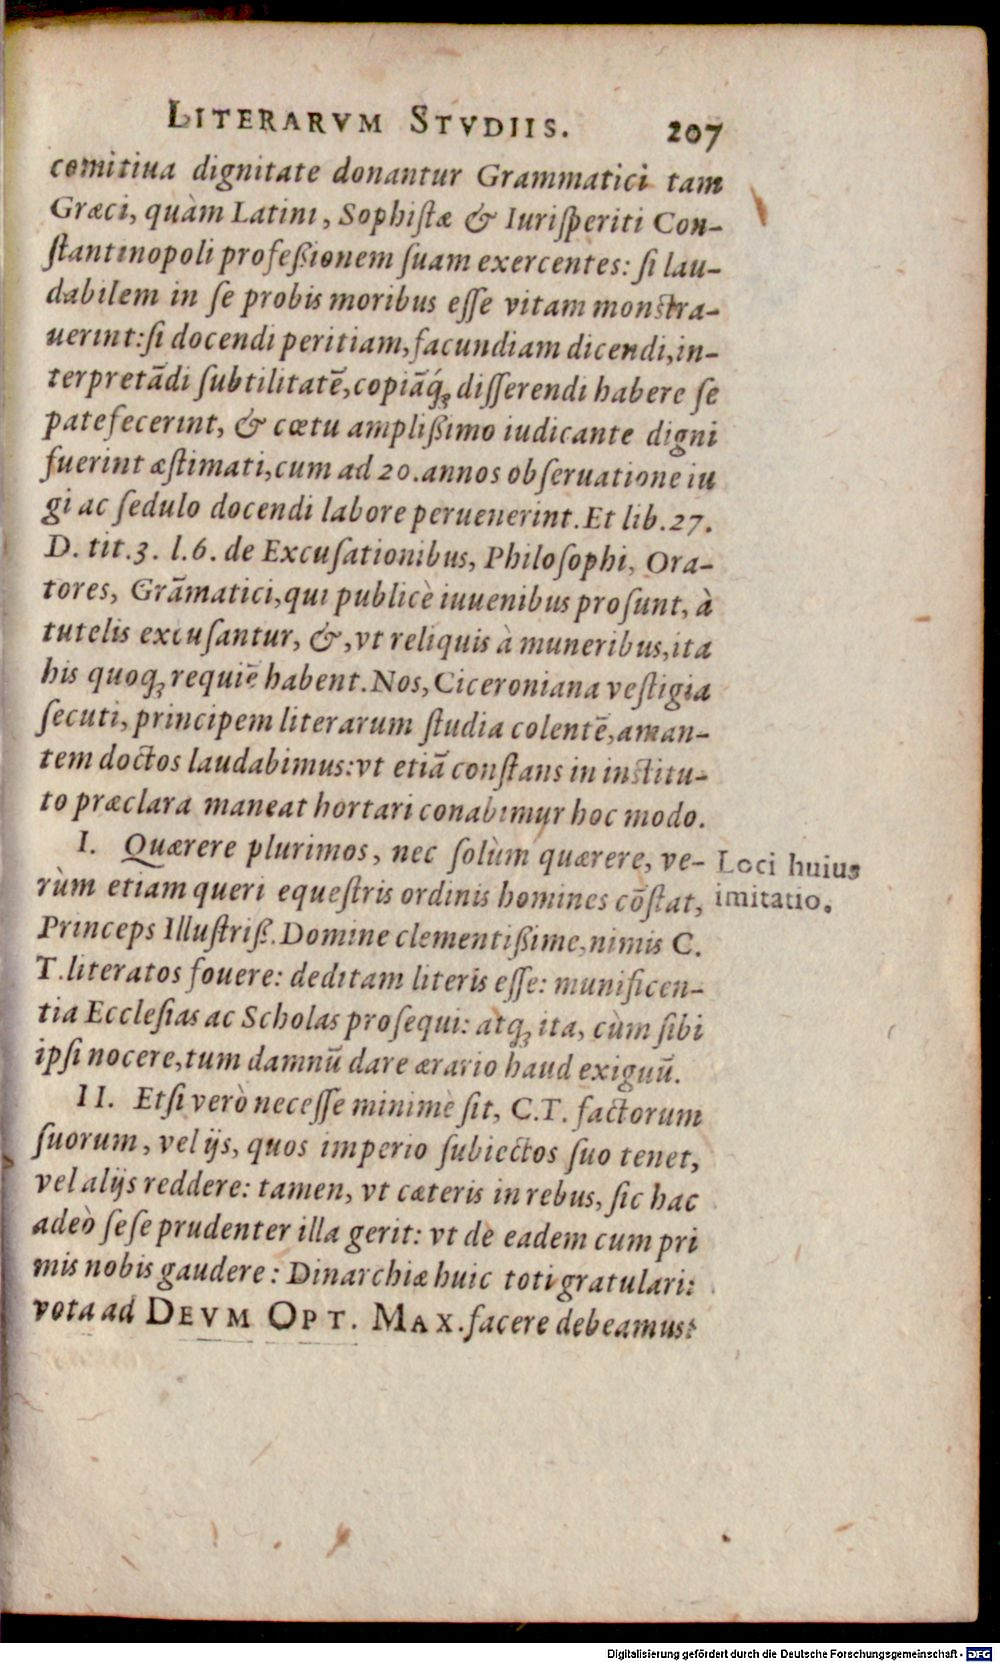 LITERARVM STVDIIS. 207
comitiua dignitate donantur Grammatici tam
Græci, quàm Latini, Sophiſtæ & Iuriſperiti Con-
ſtantinopoli profeßionem ſuam exercentes: ſi lau-
dabilem in ſe probis moribus eſſe vitam monstra-
uerint:ſi docendi peritiam,facundiam dicendi,in-
terpretādi ſubtilitatē,copiāq́ꝫ diſſerendi habere ſe
patefecerint, & cœtu amplißimo iudicante digni
fuerint æſtimati,cum ad 20.annos obſeruatione iu
gi ac ſedulo docendi labore peruenerint.Et lib.27.
D. tit.3. l.6. de Excuſationibus, Philoſophi, Ora-
tores, Grāmatici,qui publicè iuuenibus proſunt, à
tutelis excuſantur, &,vt reliquis à muneribus,ita
his quoqꝫ requiē habent.Nos,Ciceroniana veſtigia
ſecuti, principem literarum ſtudia colentē,aman-
tem doctos laudabimus:vt etiā conſtans in inſtitu-
to præclara maneat hortari conabimur hoc modo.
I. Quærere plurimos, nec ſolùm quærere, ve-
rùm etiam queri equeſtris ordinis homines cōſtat,
Princeps Illuſtriß.Domine clementißime,nimis C.
T.literatos fouere: deditam literis eſſe: munificen-
tia Eccleſias ac Scholas proſequi: atqꝫ ita, cùm ſibi
ipſi nocere,tum damnū dare ærario haud exiguū.
Loci huius
imitatio.
II. Etſi verò neceſſe minimè ſit, C.T. factorum
ſuorum, vel ijs, quos imperio ſubiectos ſuo tenet,
vel alijs reddere: tamen, vt cæteris in rebus, ſic hac
adeò ſeſe prudenter illa gerit: vt de eadem cum pri
mis nobis gaudere: Dinarchiæ huic toti gratulari:
vota ad DEVM OPT. MAX.facere debeamus:
Digitalisierung gefördert durch die Deutsche Forschungsgemeinschaft - DFG